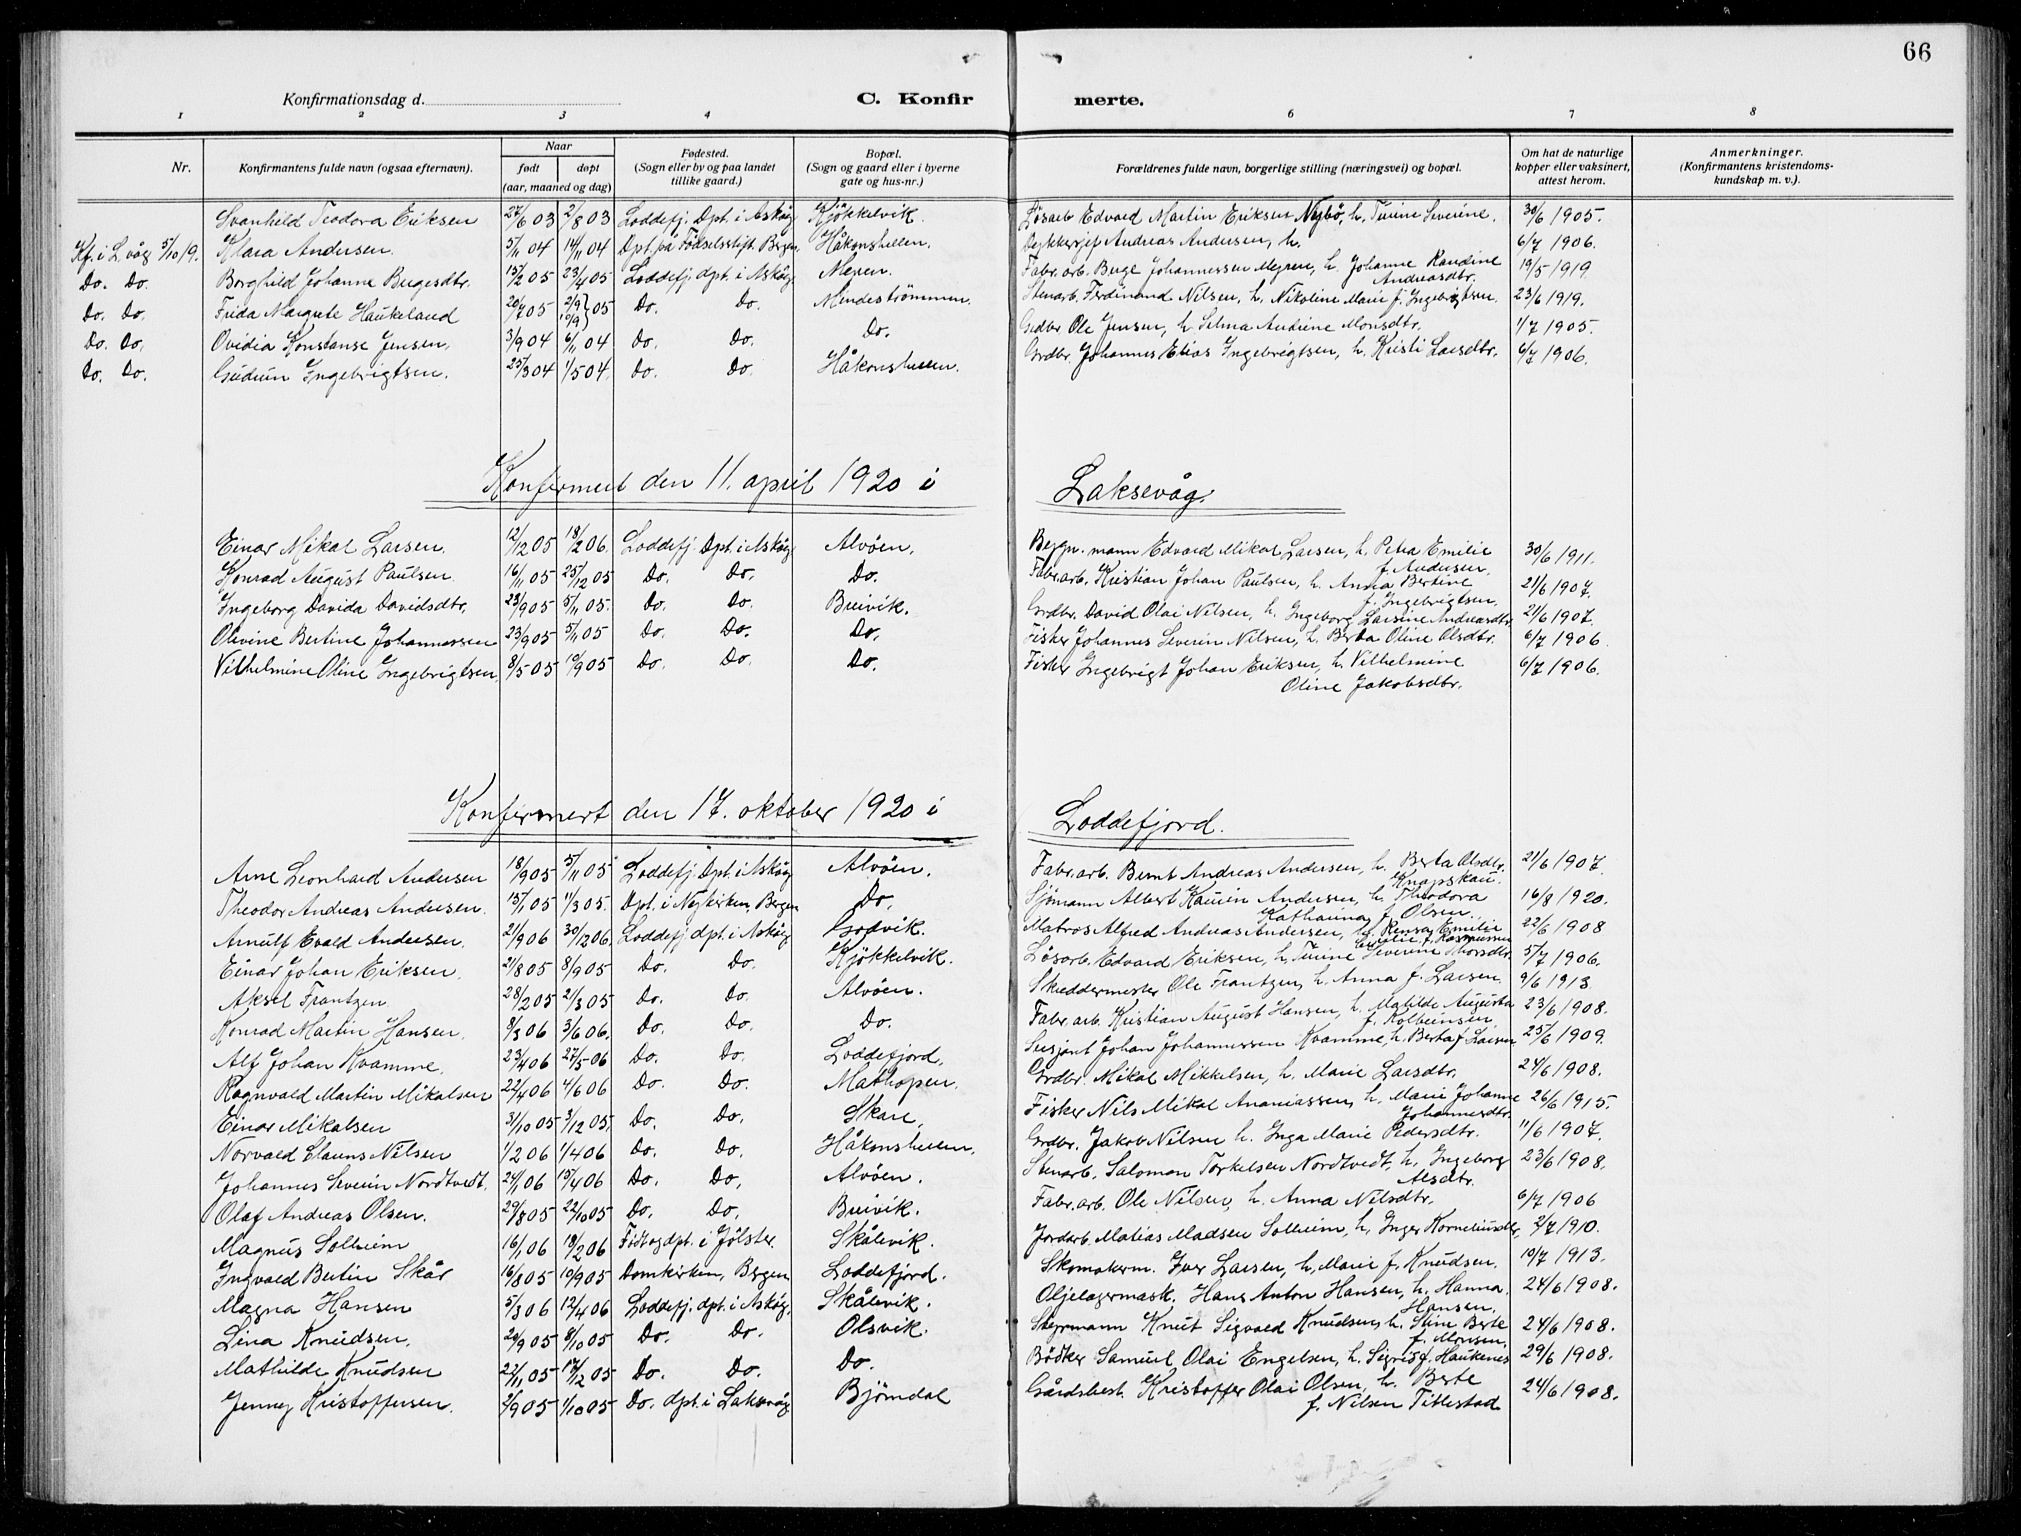 66
Konfirmationsdag d.
C. Konfirmerte.
1 2 3 4 6 7 8
Nr.
Konfirmantens fulde navn (ogsaa efternavn).
Naar
født
døpt
(aar, maaned og dag)
Fødested.
(Sogn eller by og paa landet
tillike gaard.)
Bopæl.
(Sogn og gaard eller i byerne
gate og hus-nr.)
Forældrenes fulde navn, borgerlige stilling (næringsvei) og bopæl.
Om hat de naturlige
kopper eller vaksinert,
attest herom.
Anmerkninger.
(Konfirmantens kristendoms-
kundskap m. v.).
Svanhild Teodora Eriksen 27/6 03 2/8 03 Loddefj. Dpt. i Askøy Kjøkkelvik. Løsarb. Edvard Martin Eriksen Nybø, h. Turine Severine. 30/6 1905.
Kf. i L.våg 5/10 19. Klara Andersen. 5/11 04 14/11 04 Dpt. på Fødselsstift. Bergen Håkonshellen. Andreas Andersen, h. 6/7 1906.
Do. Do. Borghild Johanne Bugesdtr. 15/2 05 23/4 05 Loddefj. dpt. i Askøy Fabr. arb. Buge Johannessen Myren, h. Johanne Randine 19/5 1919
Andreasdtr.
Do. Do. Frida Margrete Haukeland 20/7 05 05 Do. Do. Mindestrømmen. Stenarb. Ferdinand Nilsen, h. Nikoline Marie f. Ingebrigtsen. 23/6 1919.
Do. Do. Ovidia Konstanse Jensen. 3/9 04 6/11 04 Do. Do. Do. Grdbr. Ole Jensen, h. Selma Andrine Monsdtr. 1/7 1905.
Do. Do. Gudrun Ingebrigtsen. 25/3 04 1/5 04. Do. Do. Håkonshellen. Grdbr. Johannes Elias Ingebrigtsen, h. Kristi Larsdtr. 6/7 1906.
Konfirmert den 11. april 1920 i Laksevåg.
Einar Mikal Larsen. 12/12 05 18/2 06. Loddefj. Dpt. i Askøy Alvøen. mann Edvard Mikal Larsen, h. Petra Emilie 30/6 1911.
f. Andersen.
Konrad August Paulsen. 16/11 05 25/12 05 Do. Do. Do. Fabr. arb. Kristian Johan Paulsen, h. Anna Bertine 21/6 1907.
f. Ingebrigtsen.
Ingeborg Davida Davidsdtr. 23/9 05 5/11 05. Do. Do. Bruvik. Grdbr. David Olai Nilsen, h. Ingeborg Larsine Andreasdtr. 21/6 1907.
Olevine Bertine Johannessen 23/9 05 5/11 05 Do. Do. Do. Fisker Johannes Severin Nilsen, h. Berta Oline Olsdtr. 6/7 1906.
Vilhelmine Oline Ingebrigtsen. 8/5 05 10/9 05 Do. Do. Do. Fisker Ingebrigt Johan Eriksen, h. Vilhelmine 6/7 1906.
Oline Jakobsdtr.
Konfirmert den 17. oktober 1920 i Loddefjord.
Arne Leonhard Andersen 18/9 05 5/11 05 Loddefj. Dpt. i Askøy Alvøen. Fabr. arb. Bernt Andreas Andersen, h. Berta Olsdtr. 21/6 1907.
Knapskau.
Theodor Andreas Andersen. 15/1 05 1/3 05. Dpt. i Nykirken, Bergen Do. Sjømann Albert Andersen, h. Theodora 16/8 1920.
Katharina f. Olsen.
Arnulf Evald Andersen. 21/9 06 30/12 06. Loddefj. dpt. i Askøy Godvik. Matros Alfred Andreas Andersen, h. Emilie 22/6 1908
f. Rasmussen
Einar Johan Eriksen. 21/8 05 8/9 05 Do. Do. Kjøkkelvik. Løsarb. Edvard Eriksen, h. Turine Severine 5/7 1906.
Aksel Frantzen. 28/2 05 2/3 05 Do. Do. Alvøen. Skreddermester Ole Frantzen, h. Anna f. Larsen. 9/6 1913
Konrad Martin Hansen. 9/3 06 3/6 06. Do. Do. Do. Fabr. arb. Kristian August Hansen, h. Matilde Augusta 23/6 1908.
f. Kolbeinsen
Alf Johan Kvamme. 23/4 06 27/5 06 Do. Do. Loddefjord. Sersjant Johan Johannessen Kvamme, h. Berta f. Larsen 25/6 1909.
Ragnvald Martin Mikalsen 22/4 06 4/6 06 Do. Do. Mathopen. Grdbr. Mikal Mikkelsen, h. Marie Larsdtr. 24/6 1908.
Einar Mikalsen 31/10 05 3/12 05. Do. Do. Fisker Nils Mikal Ananiassen, h. Marie Johanne 26/6 1915.
Johannesdtr.
Norvald Nilsen 1/2 06 1/4 06 Do. Do. Håkonshellen. Grdbr. Jakob Nilsen h. Inga Marie Pedersdtr. 11/6 1907.
Johannes Severin Nordtvedt. 24/1 06 15/4 06 Do. Do. Alvøen. Stenarb. Salomon Torkelsen Nordtvedt, h. Ingeborg 23/6 1908.
Alsdtr.
Olaf Andreas Olsen. 29/8 05 22/10 05 Do. Do. Bruvik. Fabr. arb. Ole Nilsen, h. Anna Nilsdtr. 6/7 1906
Magnus Solheim 16/1 06 18/2 06 Født og dpt. i Jølster. Skålevik. Jordarb. Matias Madsen Solheim, h. Inger Korneliusdtr. 2/7 1910.
Ingvald Bertin Skår 16/8 05 10/9 05 Domkirken, Bergen Loddefjord. Skomakerm. Iver Larsen, h. Marie f. Knudsen. 19/7 1913.
Magna Hansen 5/3 06 12/4 06 Loddefj. dpt. i Askøy. Skålevik. Oljelagermask. Hans Anton Hansen, h. Hanna 24/6 1908.
Hansen.
Lina Knudsen. 29/9 05 8/10 05 Do. Do. Olsvik. Styrmann Knut Sigvald Knudsen, h. Stine Berte 24/6 1908.
f. Monsen.
Mathilde Knudsen 22/11 05 17/12 05 Do. Do. Do. Bødker Samuel Olai Engelsen, h. Sigrid f. Haukenes 29/6 1908.
Jenny Kristoffersen. 2/9 05 1/10 05 Do. dpt. i Laksevåg Bjørndal Gårdsbest. Kristoffer Olai Olsen, h. Berte 24/6 1908.
f. Nilsen Titlestad